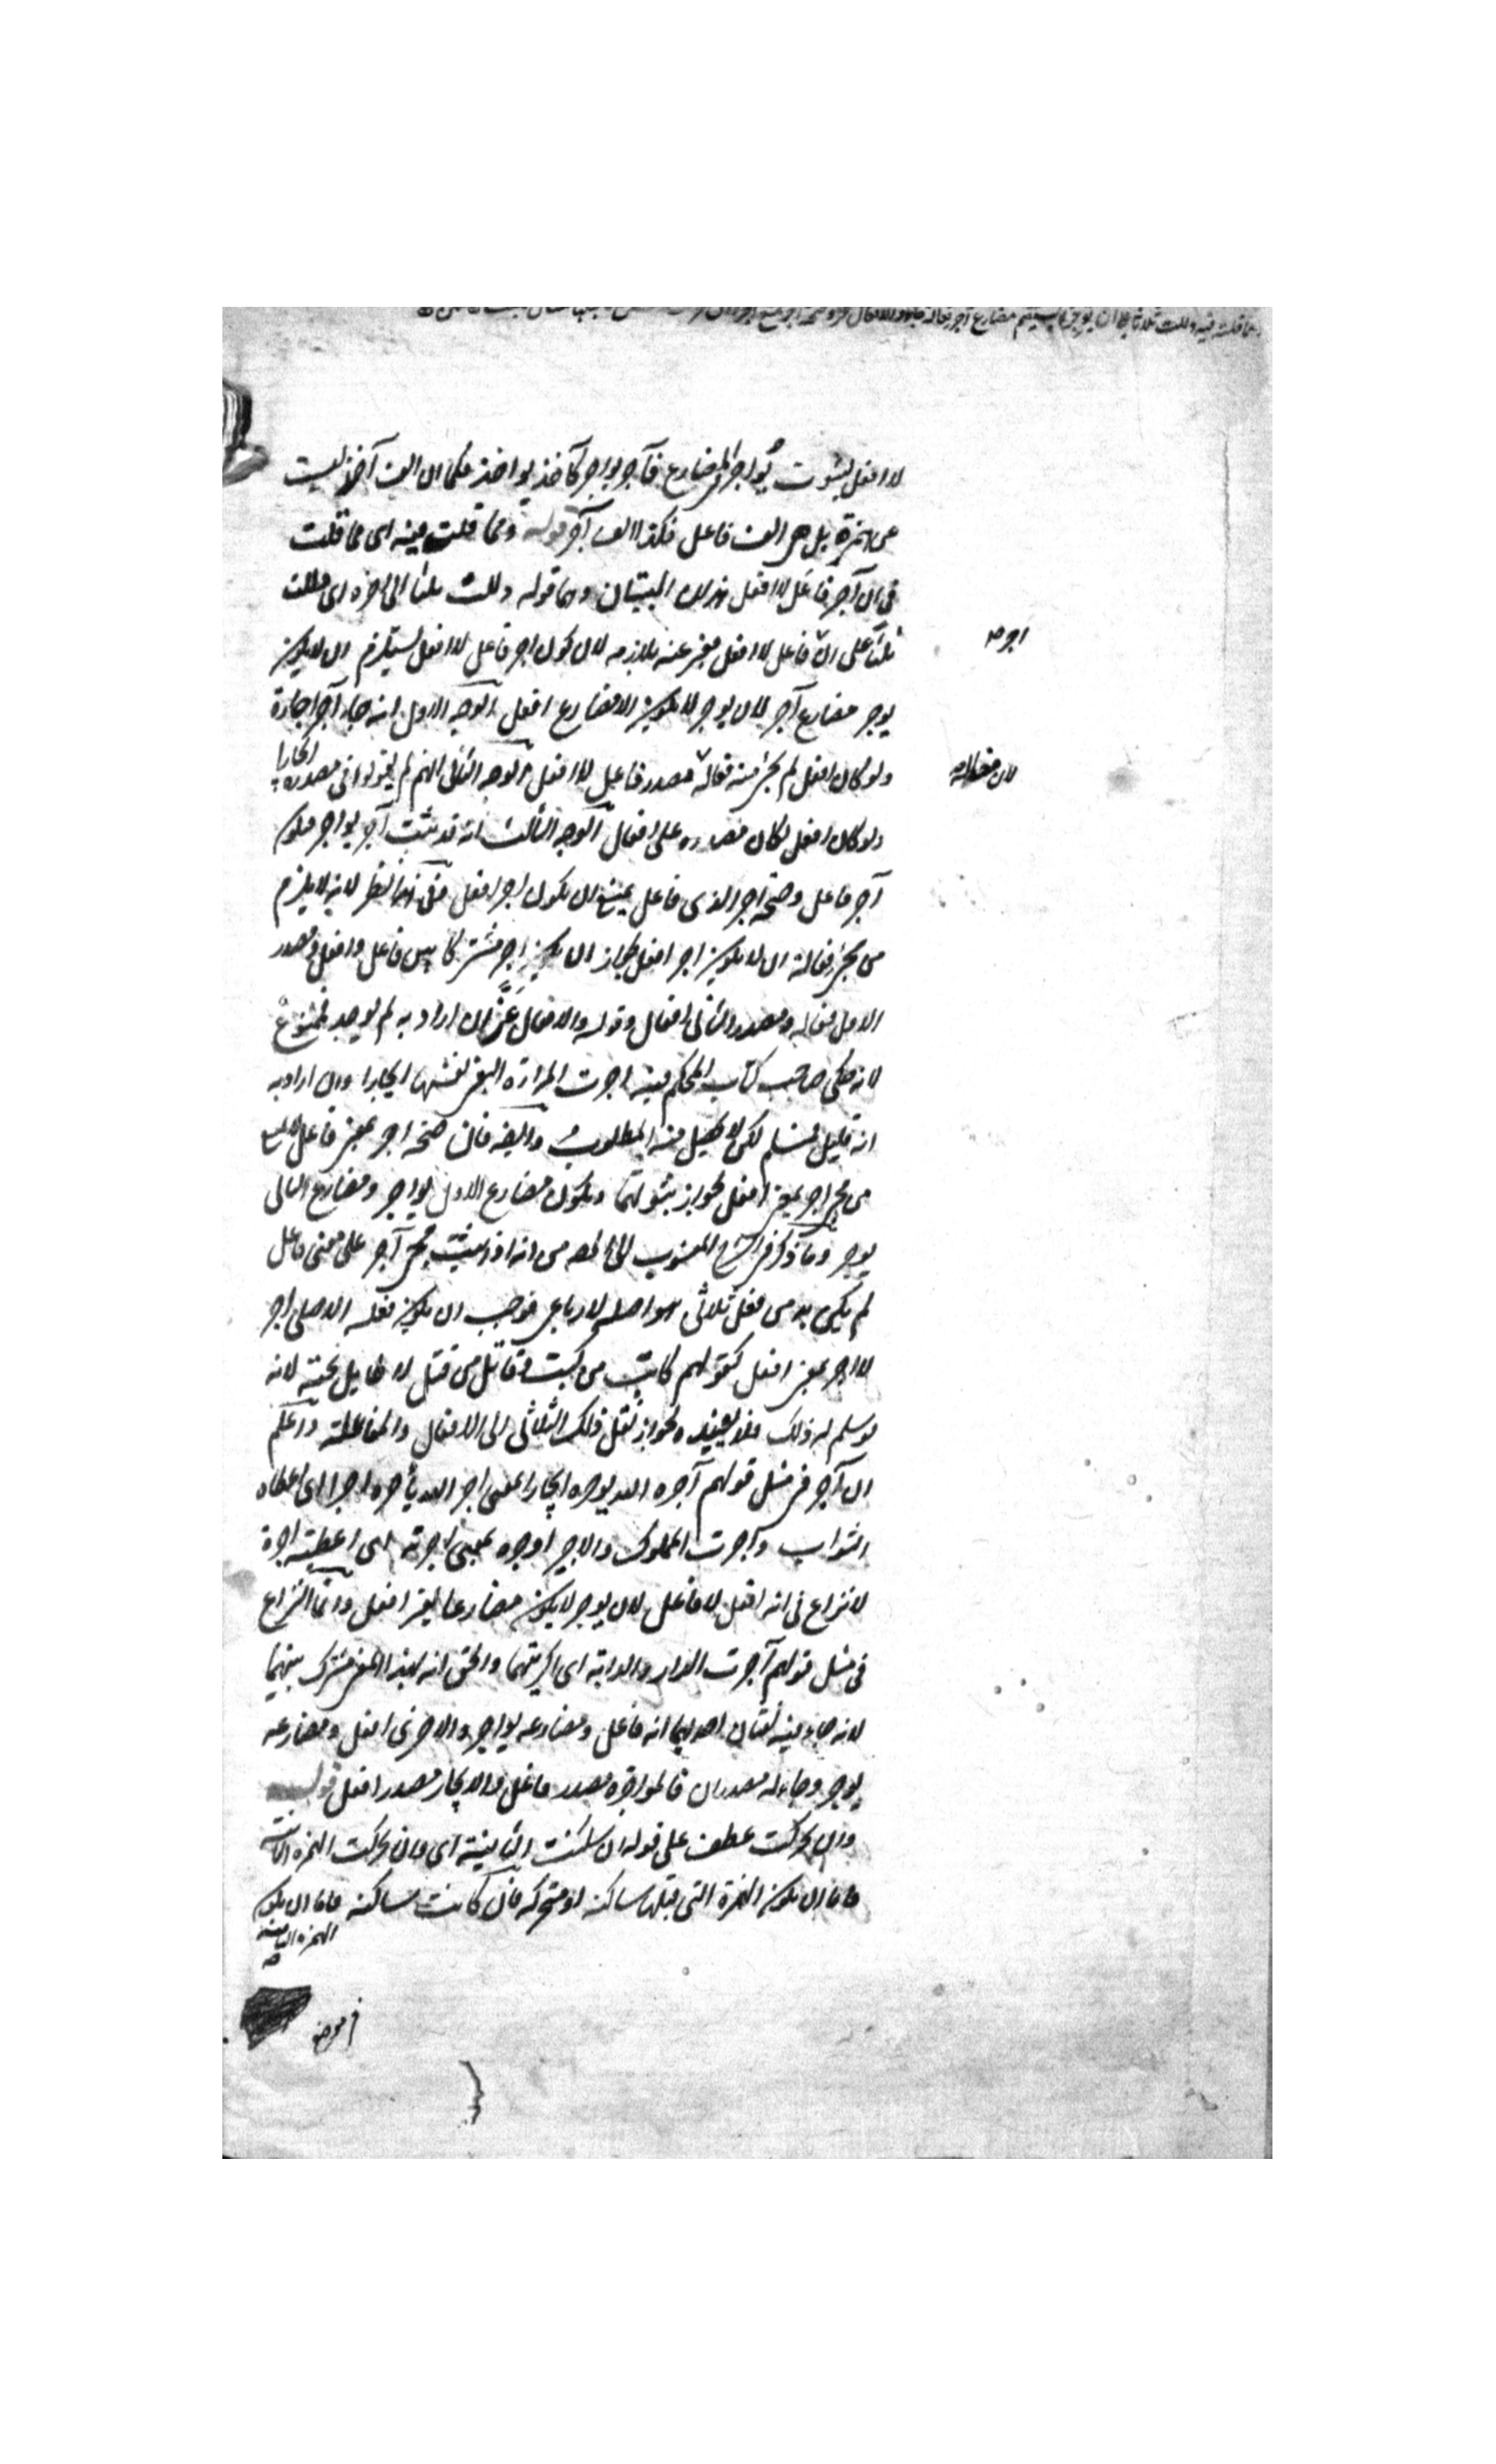 ومما قلته فيه دللت ثلاثا على ان يوجر لا يستقيم مضارع آجر فعالة جاء والافعال عز وصحة آجر تمنع آجر
لا افعل لثبوت يُواجر فى المضارع فآجر يواجر كآخذ يواخذ فكما ان الف آخذ ليست
عن همزة بل هى الف فاعل فكذا الف آجر قوله ومما قلت فيه اى مما قلت
فى ان آجر فاعَل لا افعل هذان البيتان وهما قوله دللت ثلثا الى آخره اى دللت
ثلثا على انّ فاعل لا افعل معبر عنه بلازمه لان كون اجر فاعل لا افعل يستلزم ان لا يكون
اجر صح
يوجر مضارع آجر لان يوجر لا يكون الا مضارع افعل الوجه الاول انه جاء آجر اجارة
ولو كان افعل لم يجئ منه فعالة مصدر فاعل لا افعل الوجه الثانى انهم لم يقولوا فى مصدره ايجارا
لان فعالة صح
ولو كان افعل لكان مصدره على افعال الوجه الثالث انه قد ثبت آجر يواجر فيكون
آجر فاعل وصحة اجر الذى فاعل يمنع ان يكون اجر افعل وفى هذا نظر لانه لا يلزم
من مجئ فعالة ان لا يكون اجر افعل لجاز ان يكون اجر مشتركا بين فاعل وافعل ومصدر
الاول فعالة ومصدر الثانى افعال وقوله والافعال عَزّ ان اراد به لم يوجد فممنوع
لانه حكى صاحب كتاب المحكم فيه اجرت المراة البغى نفسها ايجارا وان اراد به
انه قليل فمسلم لكن لا يحصل منه المطلوب وايضا فان صحة اجر بمعنى فاعل لا يمنع
من مجئ اجر بمعنى افعل لجواز ثبوتهما ويكون مضارع الاول يواجر ومضارع الثانى
يوجر وما ذكر فى الشرح المنسوب الى المص من انه اذا ثبت مجئ آجر على معنى فاعل
لم يكن بد من فعل ثلاثى هو اصله لا رباعى فوجب ان يكون فعله الاصلى اجر
لا اجر بمعنى افعل كقولهم كاتب من كتب وقاتل من قتل لا طايل تحته لانه
لو سلم له ذلك فلا يفيده لجواز نقل ذلك الثلاثى الى الافعال والمفاعلة واعلم
ان آجر فى مثل قولهم آجره الله يوجره ايجارا بمعنى اجر الله ياجره اجرا اى اعطاه
الثواب وآجرت المملوك والاجير اوجره بمعنى اجرته اى اعطيته اجرة
لا نزاع فى انه افعل لا فاعل لان يوجر لا يكون مضارعا لغير افعل وانما النزاع
فى مثل قولهم آجرت الدار والدابة اى اكريتهما والحق انه بهذا المعنى مشترك بينهما
لانه جاء فيه لغتان احديهما انه فاعل ومضارعه يواجر والاخرى افعل ومضارعه
يوجر وجاء له مصدران فالمواجرة مصدر فاعل والايجار مصدر افعل قوله
وان تحركت عطف على قوله ان سكنت الثانية اى وان تحركت الهمزة الثانية
فاما ان يكون الهمزة التى قبلها ساكنة او متحركة فان كانت ساكنة فاما ان يكون
الهمزة الثانية
فى موضع